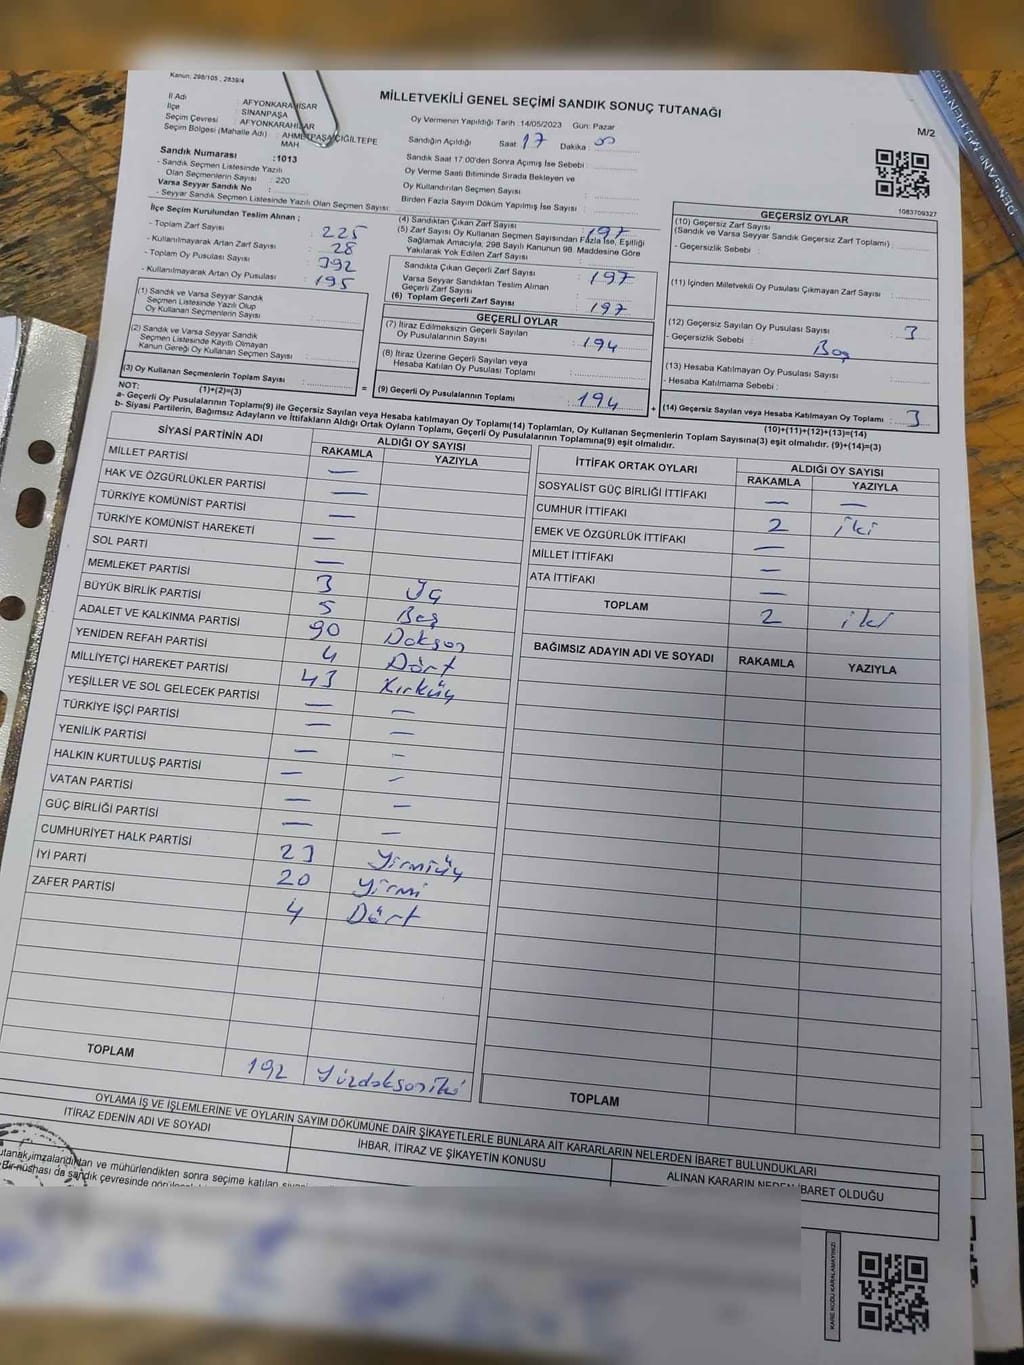 Kanun: 298/105 , 2839/4
MİLLETVEKİLİ GENEL SEÇİMİ SANDIK SONUÇ TUTANAĞI
M/2
İl Adı : AFYONKARAHİSAR
İlçe : SİNANPAŞA
Seçim Çevresi : AFYONKARAHİSAR
Seçim Bölgesi (Mahalle Adı) : AHMETPAŞA/ÇİĞİLTEPE MAH
Sandık Numarası : 1013
- Sandık Seçmen Listesinde Yazılı
Olan Seçmenlerin Sayısı : 220
Varsa Seyyar Sandık No :
- Seyyar Sandık Seçmen Listesinde Yazılı Olan Seçmen Sayısı:
Oy Vermenin Yapıldığı Tarih :14/05/2023 Gün: Pazar
Sandığın Açıldığı Saat 17 Dakika 00
Sandık Saat 17.00'den Sonra Açımış İse Sebebi :
Oy Verme Saati Bitiminde Sırada Bekleyen ve
Oy Kullandırılan Seçmen Sayısı :
Birden Fazla Sayım Döküm Yapılmış İse Sayısı :
1083709327
İlçe Seçim Kurulundan Teslim Alınan ;
- Toplam Zarf Sayısı : 225
- Kullanılmayarak Artan Zarf Sayısı : 28
- Toplam Oy Pusulası Sayısı : 392
- Kullanılmayarak Artan Oy Pusulası : 195
(1) Sandık ve Varsa Seyyar Sandık
Seçmen Listesinde Yazılı Olup
Oy Kullanan Seçmenlerin Sayısı :
(2) Sandık ve Varsa Seyyar Sandık
Seçmen Listesinde Kayıtlı Olmayan
Kanun Gereği Oy Kullanan Seçmen Sayısı :
(3) Oy Kullanan Seçmenlerin Toplam Sayısı :
(1)+(2)=(3)
(4) Sandıktan Çıkan Zarf Sayısı : 197
(5) Zarf Sayısı Oy Kullanan Seçmen Sayısından Fazla İse, Eşitliği
Sağlamak Amacıyla, 298 Sayılı Kanunun 98. Maddesine Göre
Yakılarak Yok Edilen Zarf Sayısı :
Sandıkta Çıkan Geçerli Zarf Sayısı : 197
Varsa Seyyar Sandıktan Teslim Alınan
Geçerli Zarf Sayısı :
(6) Toplam Geçerli Zarf Sayısı : 197
GEÇERLİ OYLAR
(7) İtiraz Edilmeksizin Geçerli Sayılan
Oy Pusulalarının Sayısı : 194
(8) İtiraz Üzerine Geçerli Sayılan veya
Hesaba Katılan Oy Pusulası Toplamı :
=
(9) Geçerli Oy Pusulalarının Toplamı : 194
+
GEÇERSİZ OYLAR
(10) Geçersiz Zarf Sayısı
(Sandık ve Varsa Seyyar Sandık Geçersiz Zarf Toplamı) :
- Geçersizlik Sebebi :
(11) İçinden Milletvekili Oy Pusulası Çıkmayan Zarf Sayısı :
(12) Geçersiz Sayılan Oy Pusulası Sayısı : 3
- Geçersizlik Sebebi : Boş
(13) Hesaba Katılmayan Oy Pusulası Sayısı :
- Hesaba Katılmama Sebebi :
(14) Geçersiz Sayılan veya Hesaba Katılmayan Oy Toplamı : 3
(10)+(11)+(12)+(13)=(14)
NOT:
a- Geçerli Oy Pusulalarının Toplamı(9) ile Geçersiz Sayılan veya Hesaba katılmayan Oy Toplamı(14) Toplamları, Oy Kullanan Seçmenlerin Toplam Sayısına(3) eşit olmalıdır. (9)+(14)=(3)
b- Siyasi Partilerin, Bağımsız Adayların ve İttifakların Aldığı Ortak Oyların Toplamı, Geçerli Oy Pusulalarının Toplamına(9) eşit olmalıdır.
SİYASİ PARTİNİN ADI ALDIĞI OY SAYISI
RAKAMLA YAZIYLA
MİLLET PARTİSİ —
HAK VE ÖZGÜRLÜKLER PARTİSİ —
TÜRKİYE KOMÜNİST PARTİSİ —
TÜRKİYE KOMÜNİST HAREKETİ —
SOL PARTİ —
MEMLEKET PARTİSİ 3 Üç
BÜYÜK BİRLİK PARTİSİ 5 Beş
ADALET VE KALKINMA PARTİSİ 90 Doksan
YENİDEN REFAH PARTİSİ 4 Dört
MİLLİYETÇİ HAREKET PARTİSİ 43 Kırküç
YEŞİLLER VE SOL GELECEK PARTİSİ — —
TÜRKİYE İŞÇİ PARTİSİ — —
YENİLİK PARTİSİ — —
HALKIN KURTULUŞ PARTİSİ — —
VATAN PARTİSİ — —
GÜÇ BİRLİĞİ PARTİSİ — —
CUMHURİYET HALK PARTİSİ 23 Yirmiüç
İYİ PARTİ 20 Yirmi
ZAFER PARTİSİ 4 Dört
TOPLAM 192 Yüzdoksaniki
İTTİFAK ORTAK OYLARI ALDIĞI OY SAYISI
RAKAMLA YAZIYLA
SOSYALİST GÜÇ BİRLİĞİ İTTİFAKI — —
CUMHUR İTTİFAKI 2 iki
EMEK VE ÖZGÜRLÜK İTTİFAKI —
MİLLET İTTİFAKI —
ATA İTTİFAKI —
TOPLAM 2 iki
BAĞIMSIZ ADAYIN ADI VE SOYADI RAKAMLA YAZIYLA
TOPLAM
OYLAMA İŞ VE İŞLEMLERİNE VE OYLARIN SAYIM DÖKÜMÜNE DAİR ŞİKAYETLERLE BUNLARA AİT KARARLARIN NELERDEN İBARET BULUNDUKLARI
İTİRAZ EDENİN ADI VE SOYADI
İHBAR, İTİRAZ VE ŞİKAYETİN KONUSU
ALINAN KARARIN NEDEN İBARET OLDUĞU
utanak imzalandıktan ve mühürlendikten sonra seçime katılan
Bir nüshası da sandık çevresinde
KARE KODU KARALAMAYINIZ!